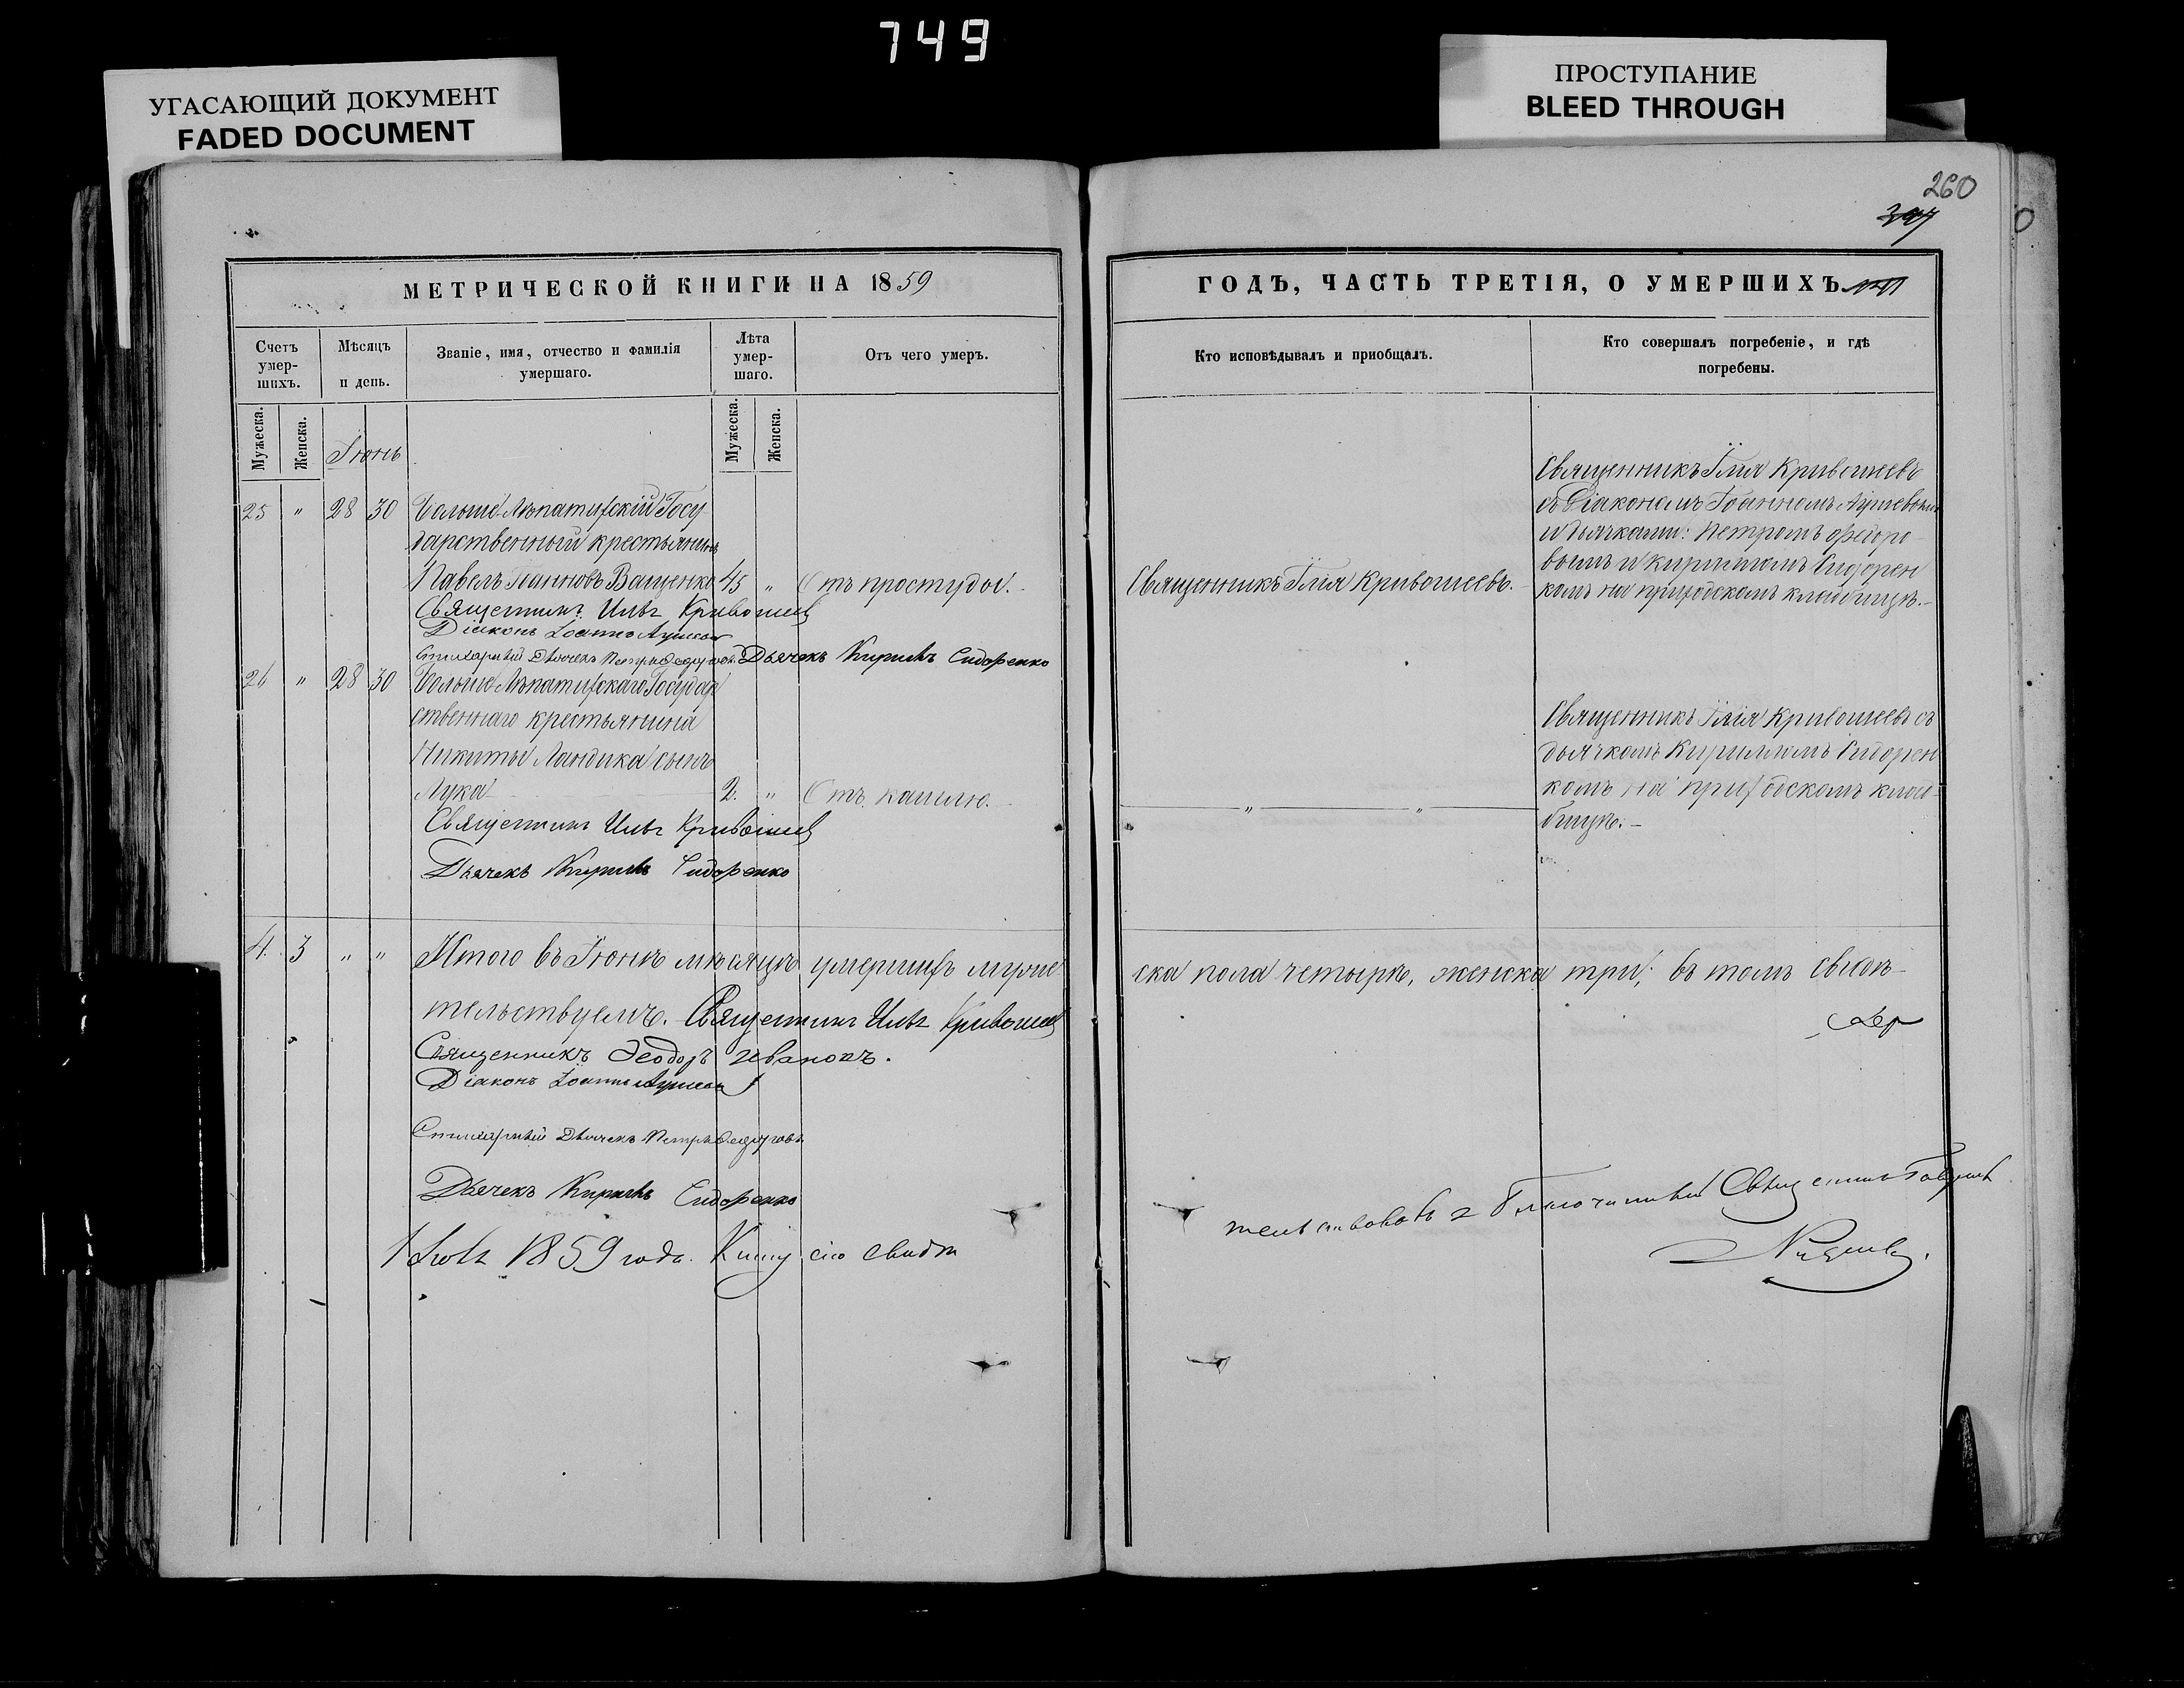 749
УГАСАЮЩИЙ ДОКУМЕНТ
FADED DOCUMENT
ПРОСТУПАНИЕ
BLEED THROUGH
260
МЕТРИЧЕСКОЙ КНИГИ НА 1859
ГОДЪ, ЧАСТЬ ТРЕТІЯ, О УМЕРШИХЪ
Счетъ умер-
шихъ.
Мѣсяцъ
и день.
Званіе, имя, отчество и фамилія
умершаго.
Лѣта
умер-
шаго.
Отъ чего умеръ.
Кто исповѣдывалъ и пріобщалъ.
Кто совершалъ погребеніе, и гдѣ
погребены.
Мужеска.
Женска.
Іюнь
Мужеска.
Женска.
25 " 28 30 Больше-Лѣпатихскій Госу-
дарственный крестьянинъ
Павелъ Іоанновъ Ващенко 45 " Отъ простуды.
Священникъ Илья Кривошеевъ
Діаконъ Іоаннъ
Стихарный Дьячекъ Петръ Федоровъ Дьячекъ Кирилъ Сидоренко
Священникъ Илія Кривошеевъ.
Священникъ Илія Кривошеевъ
съ Діакономъ Іоанномъ
и дьячками: Петромъ Федоро-
вымъ и Кирилломъ Сидорен
комъ на приходскомъ кладбищѣ.-
26 " 28 30 Больше-Лѣпатихскаго Государ
ственнаго крестьянина
Никиты Ландика сынъ
Лука 2. " Отъ кашлю.
Священникъ Илья Кривошеев
Дьячекъ Кирилъ Сидоренко
" "
Священникъ Илія Кривошеевъ съ
дьячкомъ Кирилломъ Сидорен
комъ на приходскомъ клад-
бищѣ.-
4. 3 " " Итого въ Іюнѣ мѣсяцѣ умершихъ муже-
ска пола четыре, женска три; въ томъ свидѣ-
тельствуемъ. Священникъ Илья Кривошеев
Священникъ Ѳеодоръ Ивановъ.
Діаконъ Іоаннъ
Стихарный Дьячекъ Петръ Федоровъ
Дьячекъ Кирилъ Сидоренко
1859 года. Книгу сію свидѣ
тельствовалъ Благочинный Священникъ Гавріилъ